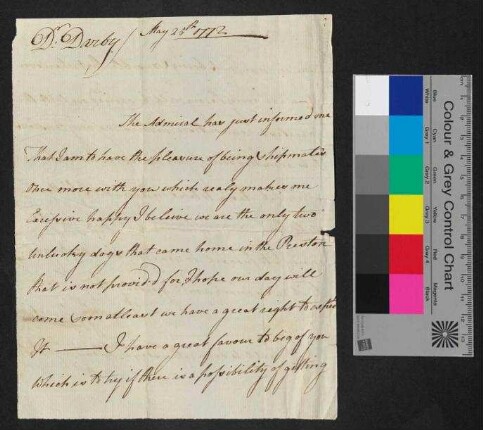 Dr. Darby / May 25th 1772
The Admiral has just informed me
That I am to have the pleasure of being Shipmates
once more with you which realy makes me
Excessive happy I beleive we are the only two
unlucky dogs that came home in the Preston
that is not provided for I hope our day will
come soon at least we have a great right to expect
It — I have a great favour to beg of you
which is to try if there is a possibility of getting
Colour & Grey Control Chart
Blue Cyan Green Yellow Red Magenta
White Grey 1 Grey 2 Grey 3 Grey 4 Black